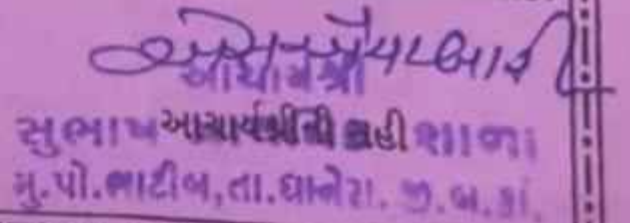 આચાર્યશ્રી
સુભાષ આચાર્યશ્રીની સહી શાળા
મુ.પો.ભાટીબ,તા.ધાનેરા. જી.બ.કાં